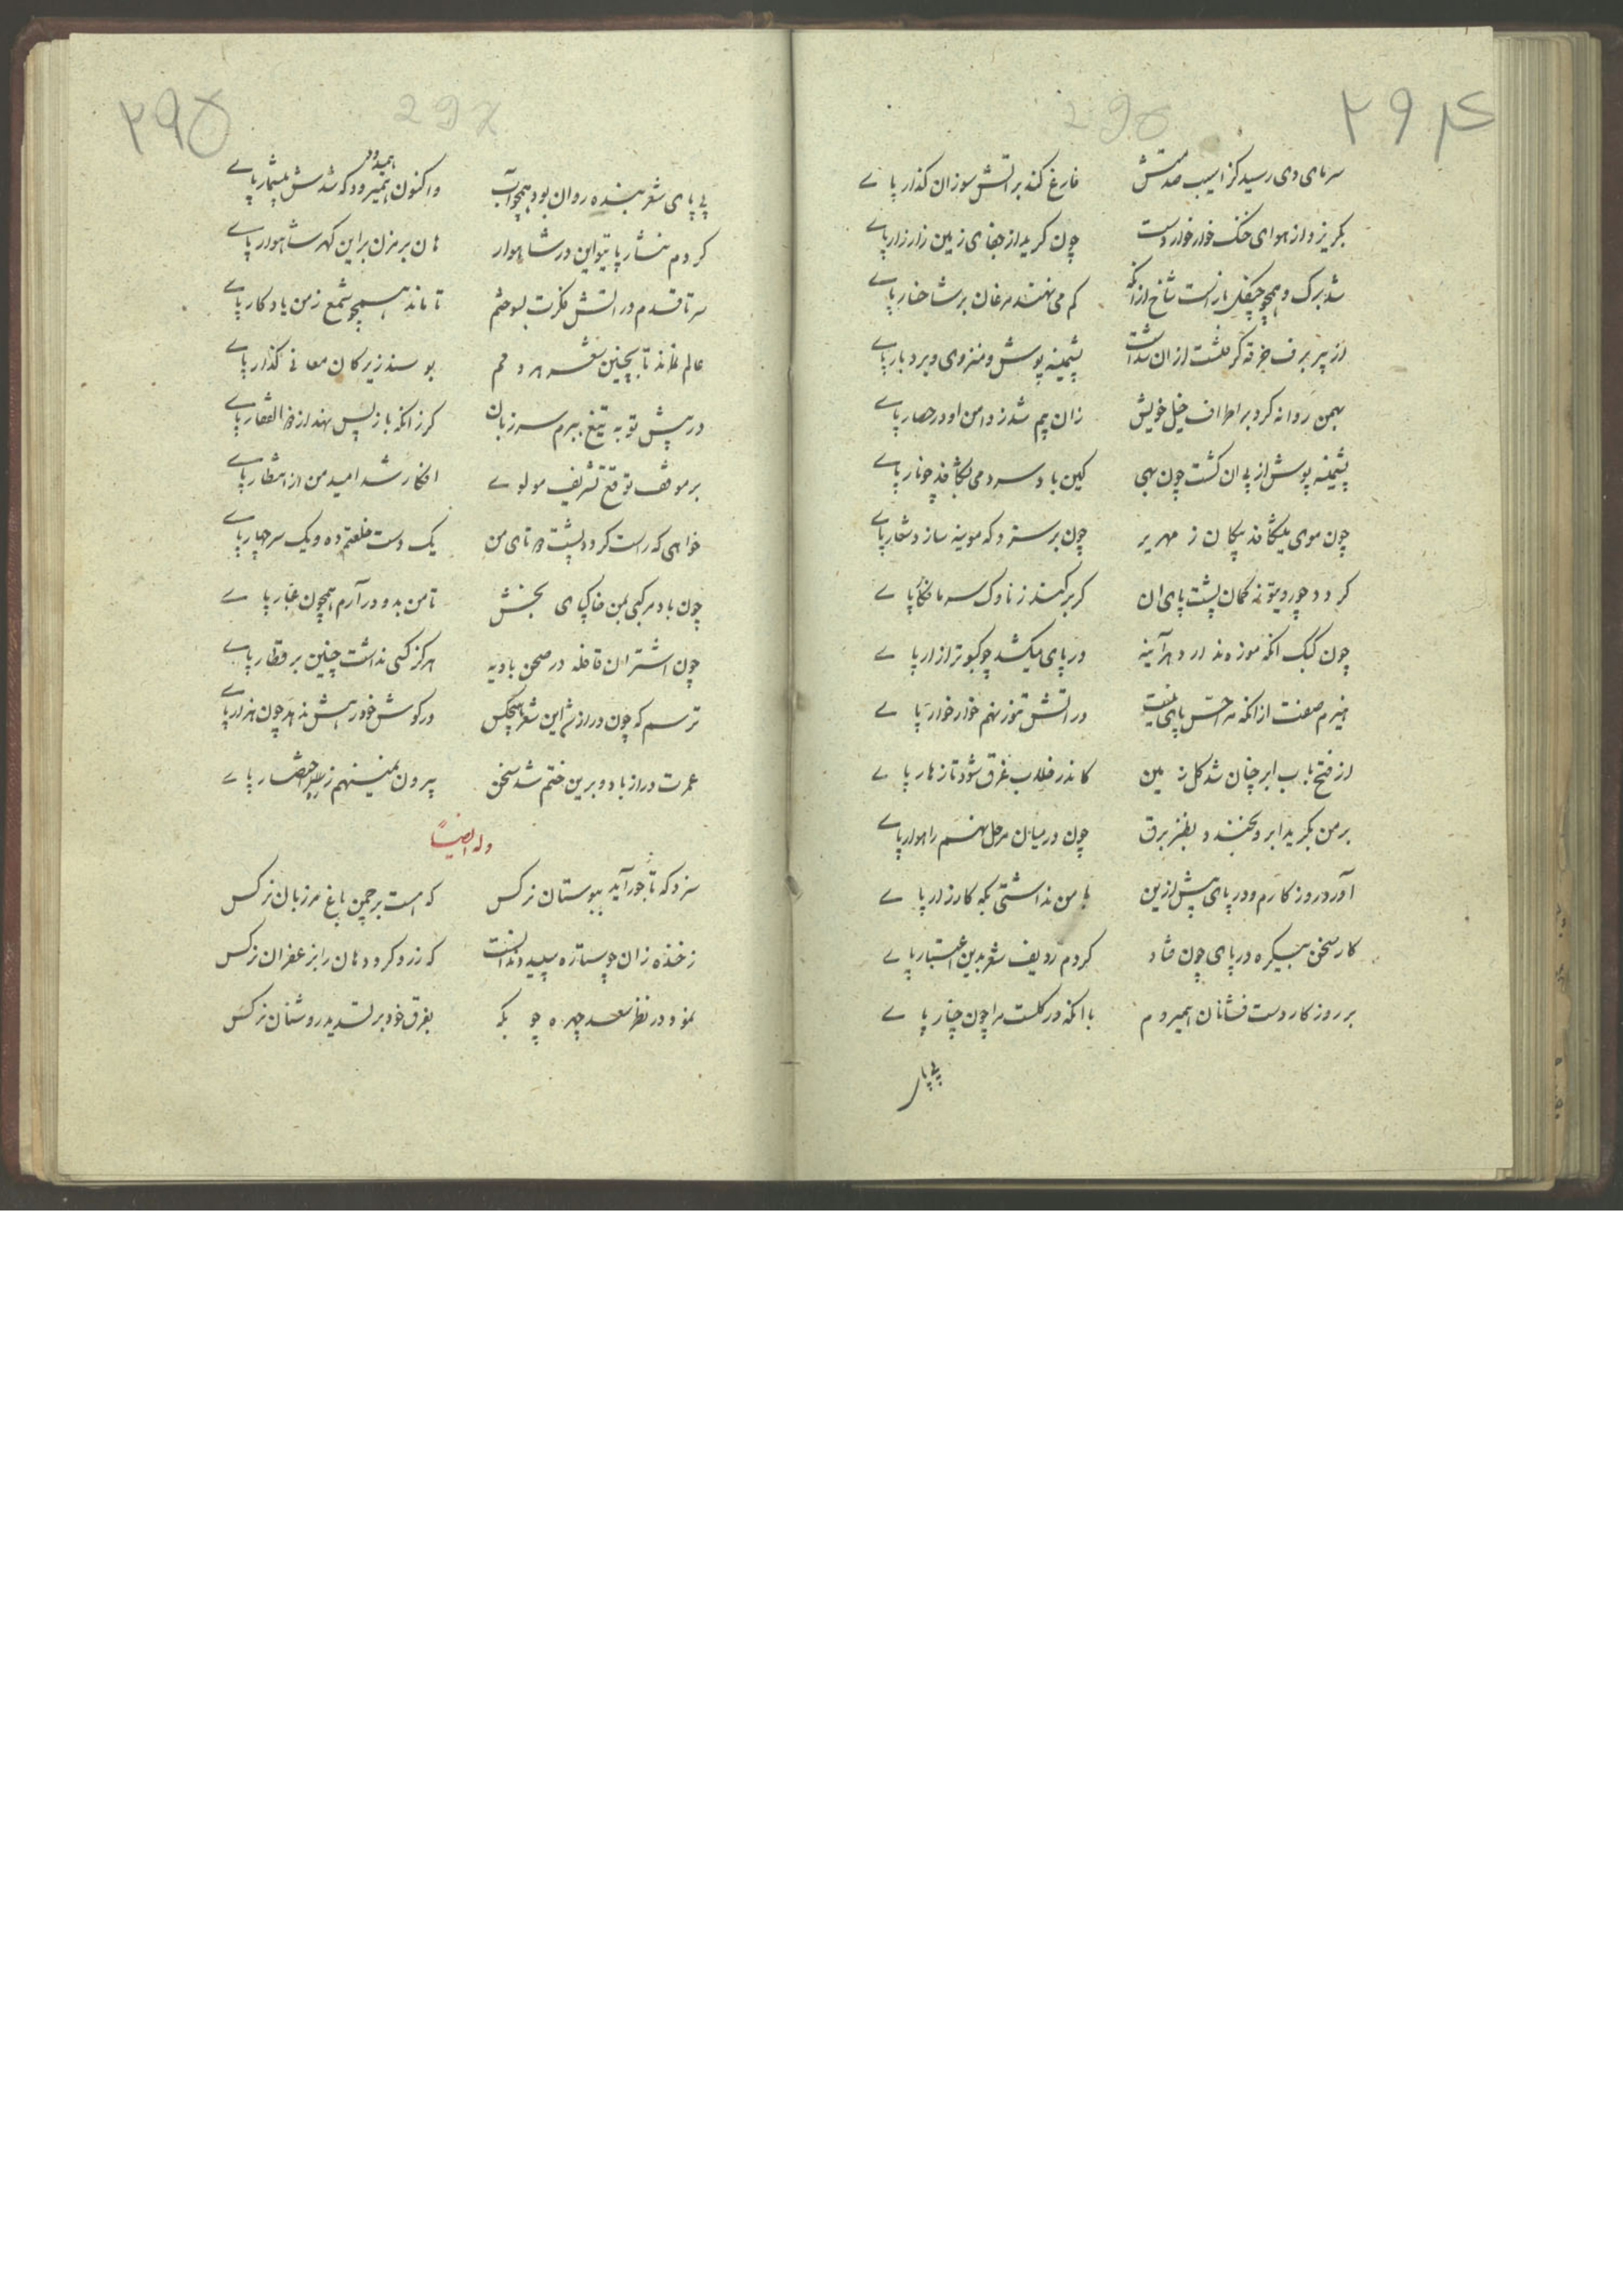 ۲۹۴
295
سرمای دی رسید کز اسیب صدمتش فارغ کند بر اتش سوزان کذار پای
بکریزد از هوای خنک خوار خوار دست چون کرید از جفای زمین زار زار پای
شد برک و همچو چنکل باز است شاخ ازانکه کم می نهند مرغان بر شاخسار پای
از پیر برف خرقه کر پشمینه پوش و منزوی و بردبار پای
بهمن روانه کرد بر اطراف خیل خویش زان بیم شد ز دامن او در حصار پای
پشمینه پوش از پی ان کشت چون بهی کین باد سرد می بکافد چو نار پای
چون موی میشکافد پیکان ز مهریر چون بر سترد که موینه سازد شعار پای
کردد چو در دو نه کمان پشت پای ان کر بر کند ز ناوک سرما فکار پای
چون کبک انکه موزه ندارد هر آینه در پای میکشد چو کبوتر ازار پای
هیزم صفت ازانکه مرا حس پای نیست در اتش تموز نهم خوار خوار پای
از فتح باب ابر چنان شد کل زمین کاندر خلاب غرق شود تا زهار پای
بر من بکرید ابر و بخندد بطنز برق چون در میان مرحل نهم راهوار پای
آورد روزکارم و در پای پیش ازین با من نداشتی بکه کارزار پای
کار سخن بیکره در پای چون فتاد کردم ردیف شعر بدین اعتبار پای
بر روزکار دست فشانان همیروم با انکه در کلست مرا چون چنار پای
پی پا
۲۹۵
297
پی پای شعر بنده روان بود همچو آب و اکنون همیرود که شدش بیشمار پای
همیدود
کردم نثار پای تو این در شاهوار هان بر مزن برین کهر شاهوار پای
سر تا قدم در اتش فکرت بسوختم تا ماند همچو شمع ز من یادکار پای
عالم نماند تا بچنین شعر هر دمم بوسند زیرکان معانی کذار پای
در پیش تو به تیغ ببرم سر زبان کرزانکه باز پس نهد از ذو الفقار پای
بر موقف توقع تشریف مولوی افکار شد امید من از انتظار پای
خواهی که راست کردد پشت دو تای من یک دست خلعتم ده و یک سر چهار پای
چون باد مرکبی بمن خاکپای بخش تا من بدو در آرم همچون غبار پای
چون اشتران قافله در صحن بادیه هرکز کسی نداشت چنین بر قطار پای
ترسم که چون درازشد این شعر هیچکس در کوش خود رهش ندهد چون هزار پای
عمرت دراز باد و برین ختم شد سخن بیرون نمینهم ز طریق اختصار پای
وله ایضاً
سزد که تاجور آید ببوستان نرکس که هست بر چمن باغ مرزبان نرکس
ز خنده زان چو ستاره سپید دندانست که زرد کرد دهان را بزعفران نرکس
نمود در نظر سعد چهره چو بکه بفرق خود بر تسدید روشنان نرکس